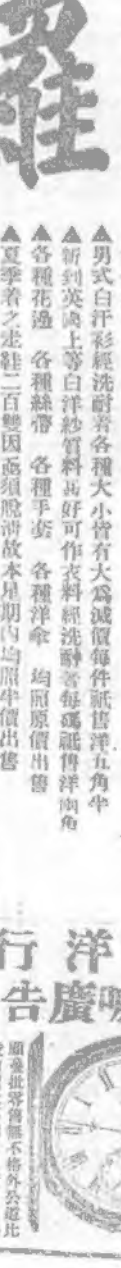 羅
▲男式白汗衫經洗耐着各種大小皆有大為減價每件祇售洋五角半
▲新到英國上等白洋紗質料甚好可作衣料經洗耐着每碼祇售洋兩角
▲各種花邊　各種絲帶　各種手套　各種洋傘　均照原價出售
▲夏季着之走鞋二百雙因亟須脫清故本星期內均照半價出售
洋行
廣告